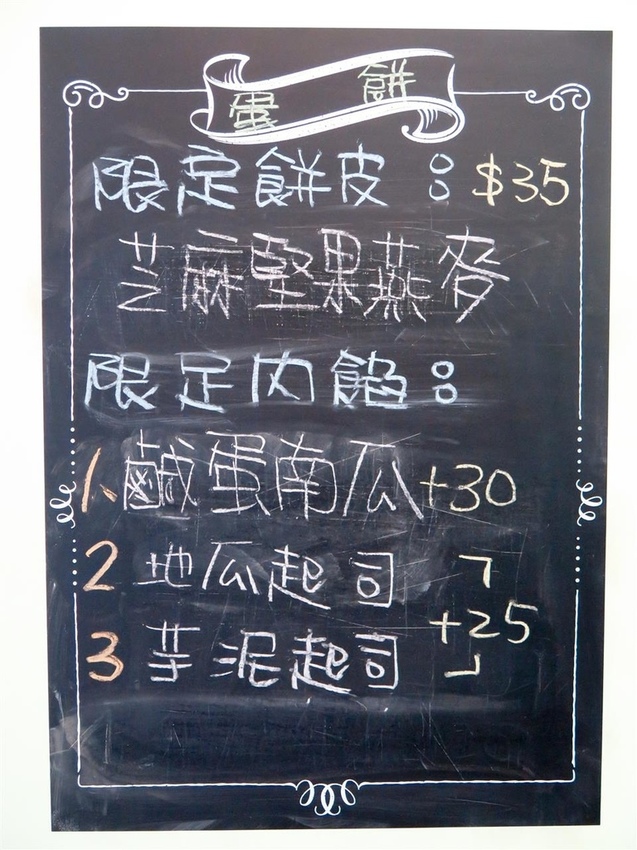 蛋餅
限定餅皮：$35
芝麻堅果燕麥
限定内餡：
1、鹹蛋南瓜+30
2 地瓜起司 ㄱ
+25
3 芋泥起司 ┘